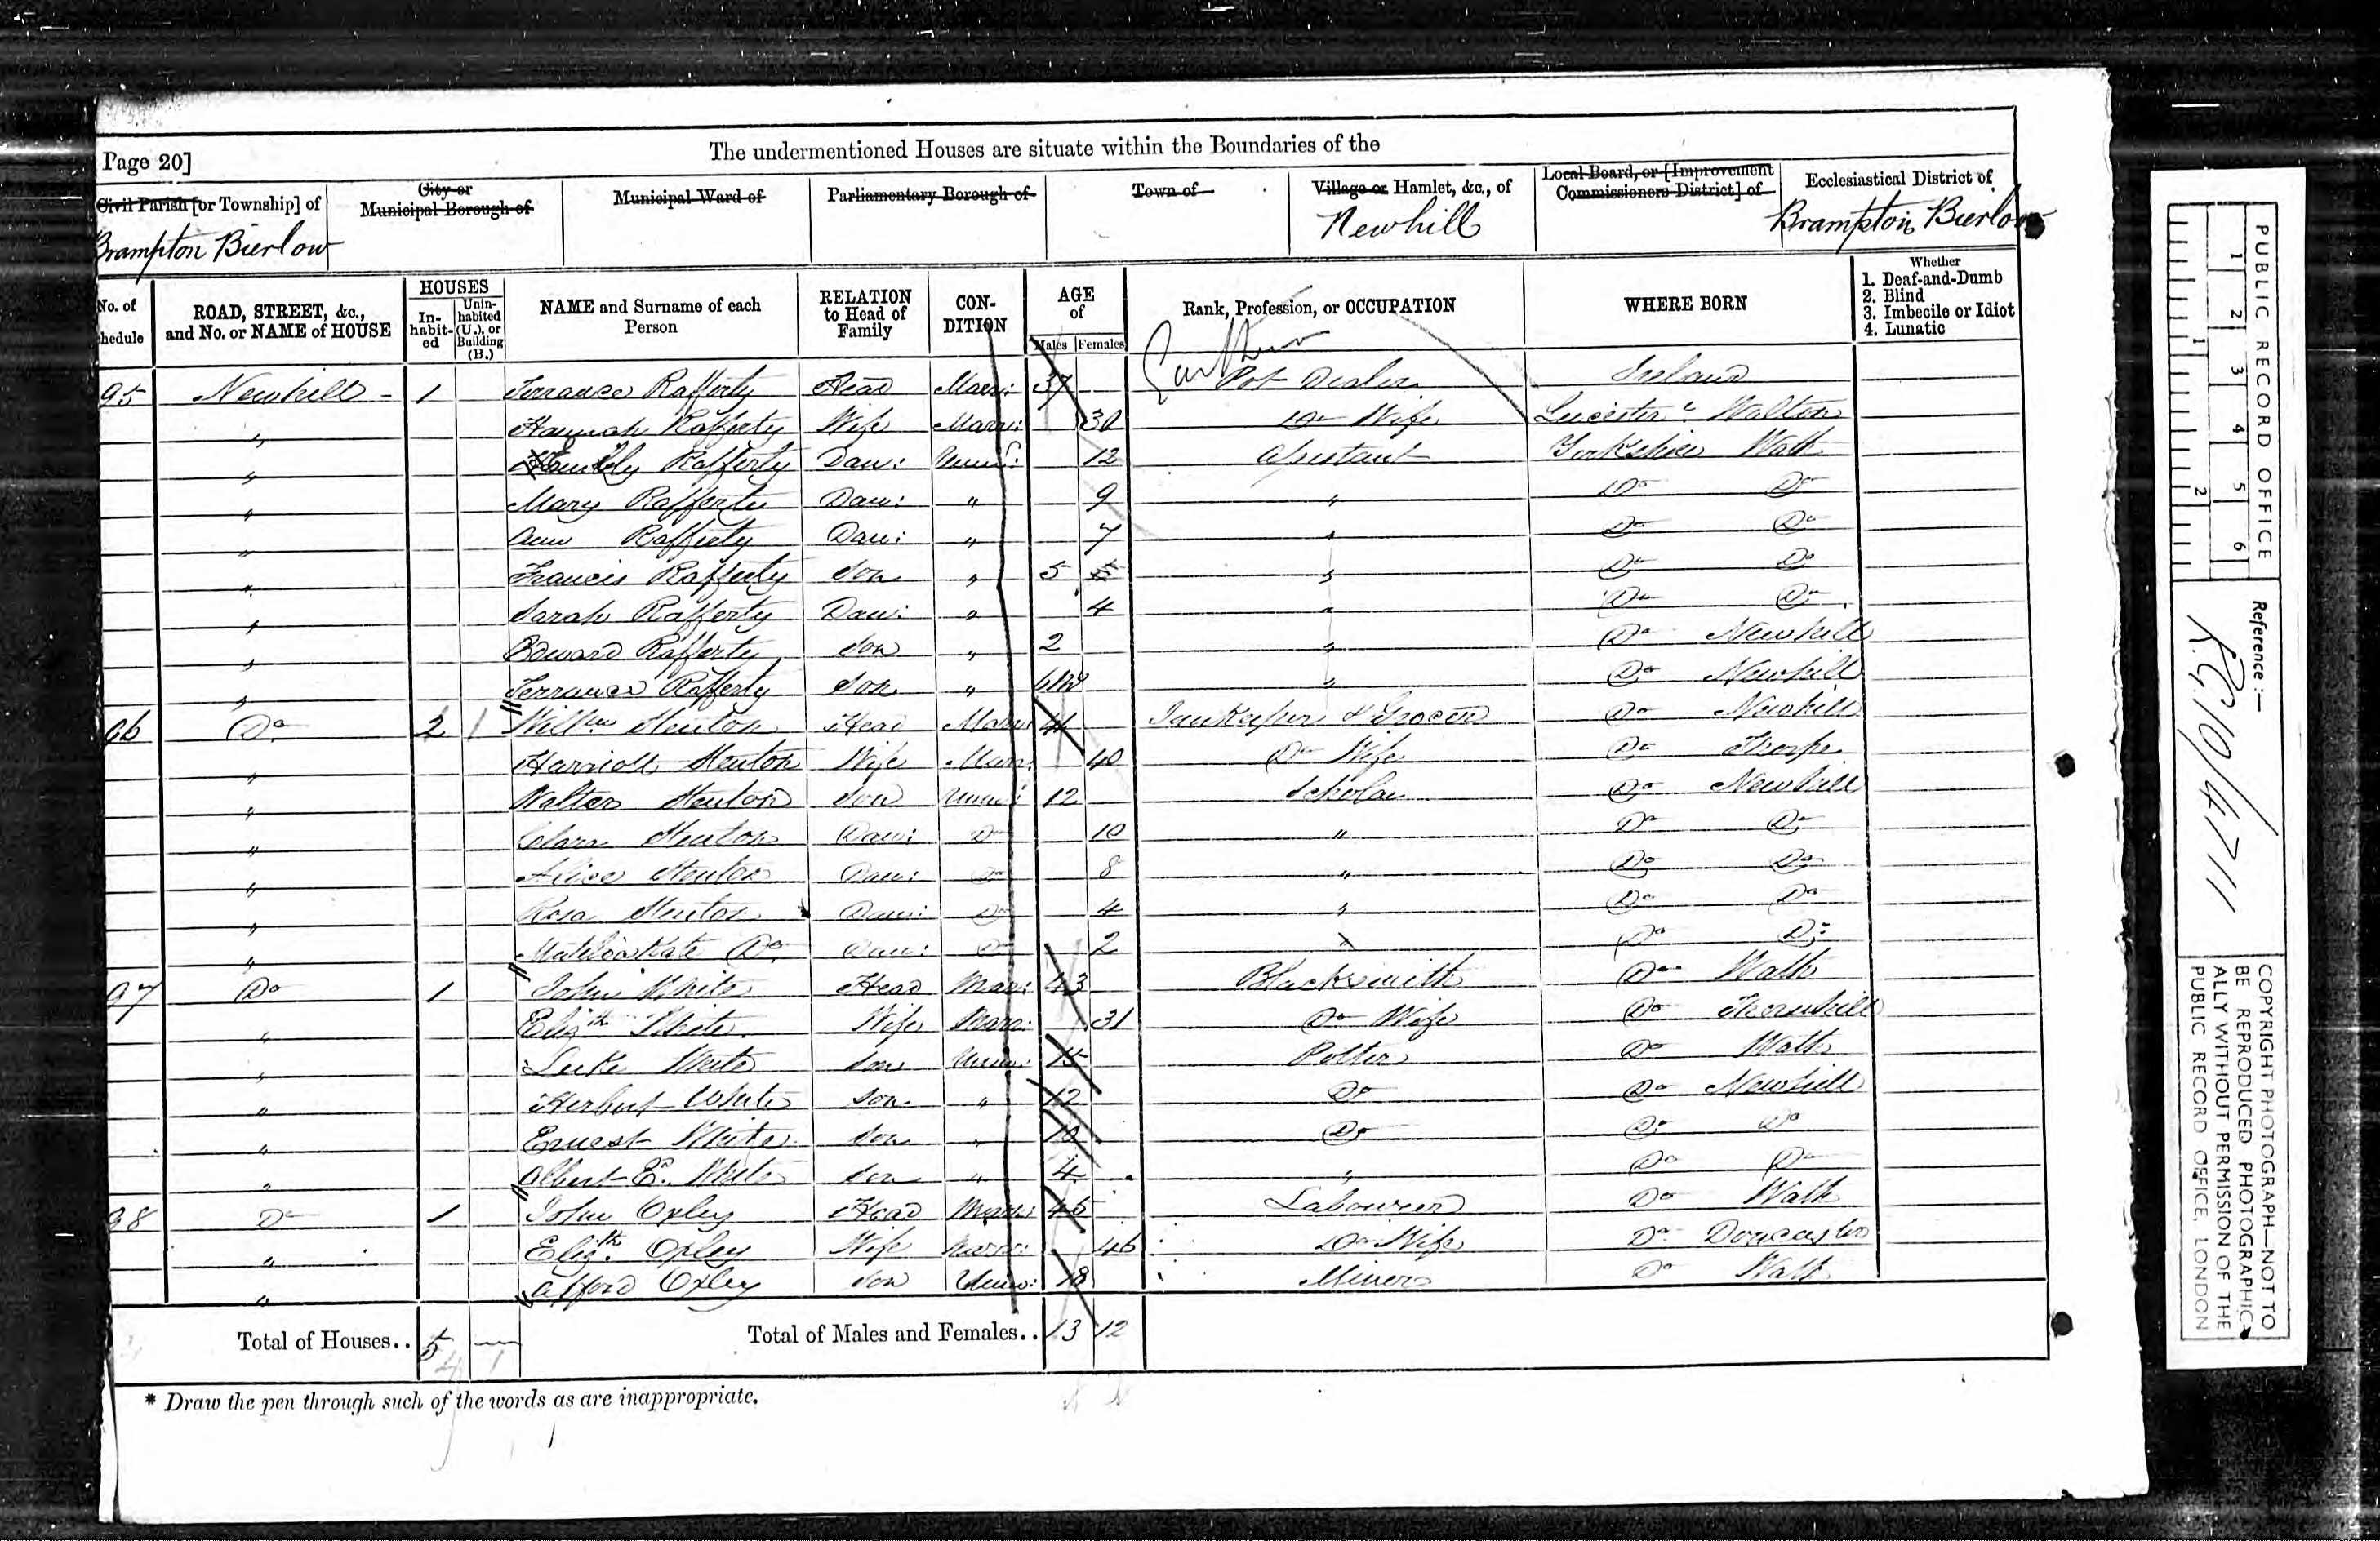 Page 20]
The undermentioned Houses are situate within the Boundaries of the
Civil Parish [or Township] of
City or Municipal Borough of
Municipal Ward of
Parliamentary Borough of
Town of
Village or Hamlet, &c., of
Local Board, or [Improvement Commissioners District] of
Ecclesiastical District of
Brampton Bierlow
Newhill
Brampton Bierlow
No. of hedule
ROAD, STREET, &c., and No. or NAME of HOUSE
HOUSES
In-habit-ed
Unin-habited (U.), or Building (B.)
NAME and Surname of each Person
RELATION to Head of Family
CON-DITION
AGE of
Males Females
Rank, Profession, or OCCUPATION
WHERE BORN
Whether
1. Deaf-and-Dumb
2. Blind
3. Imbecile or Idiot
4. Lunatic
95 Newhill 1 Terrance Rafferty Head Marr: 37 Pot Dealer Ireland
" Hannah Rafferty Wife Marr: 30 Do Wife Leicester Walton
" Rafferty Daw: Unm: 12 Assistant Yorkshire Wath
" Mary Rafferty Daw: " 9 " Do Do
" Ann Rafferty Daw: " 7 " Do Do
" Francis Rafferty Son " 5 5 " Do Do
" Sarah Rafferty Daw: " 4 " Do Do
" Edward Rafferty Son " 2 " Do Newhill
" Terrance Rafferty Son " " Do Newhill
96 Do 2 1 Willm Head Marr: 41 InnKeeper & Grocer Do Newhill
" Harriott Wife Marr: 40 Do Wife Do Thorpe
" Walter Son Unm: 12 Scholar Do Newhill
" Clara Daw: Do 10 " Do Do
" Alice Daw: Do 8 " Do Do
" Rosa Daw: Do 4 " Do Do
" Kate Do Daw: Do 2 " Do Do
97 Do 1 John White Head Marr: 43 Blacksmith Do Wath
" Elizth White Wife Marr: 31 Do Wife Do
" Luke White Son Unm: 15 Potter Do Wath
" Herbert White Son " 12 Do Do Newhill
" Ernest White Son " 10 Do Do Do
" Albert E. White Son " 4 " Do Do
98 Do 1 John Oxley Head Marr: 45 Labourer Do Wath
" Elizth Oxley Wife Marr: 46 Do Wife Do Doncaster
" Afford Oxley Son Unm: 18 Miner Do Wath
Total of Houses.. 5 —
4 1
Total of Males and Females.. 13 12
* Draw the pen through such of the words as are inappropriate.
PUBLIC RECORD OFFICE
1 2 3 4 5 6
1 2
Reference :—
R.G. 10/4711
COPYRIGHT PHOTOGRAPH—NOT TO
BE REPRODUCED PHOTOGRAPHIC-
ALLY WITHOUT PERMISSION OF THE
PUBLIC RECORD OFFICE, LONDON